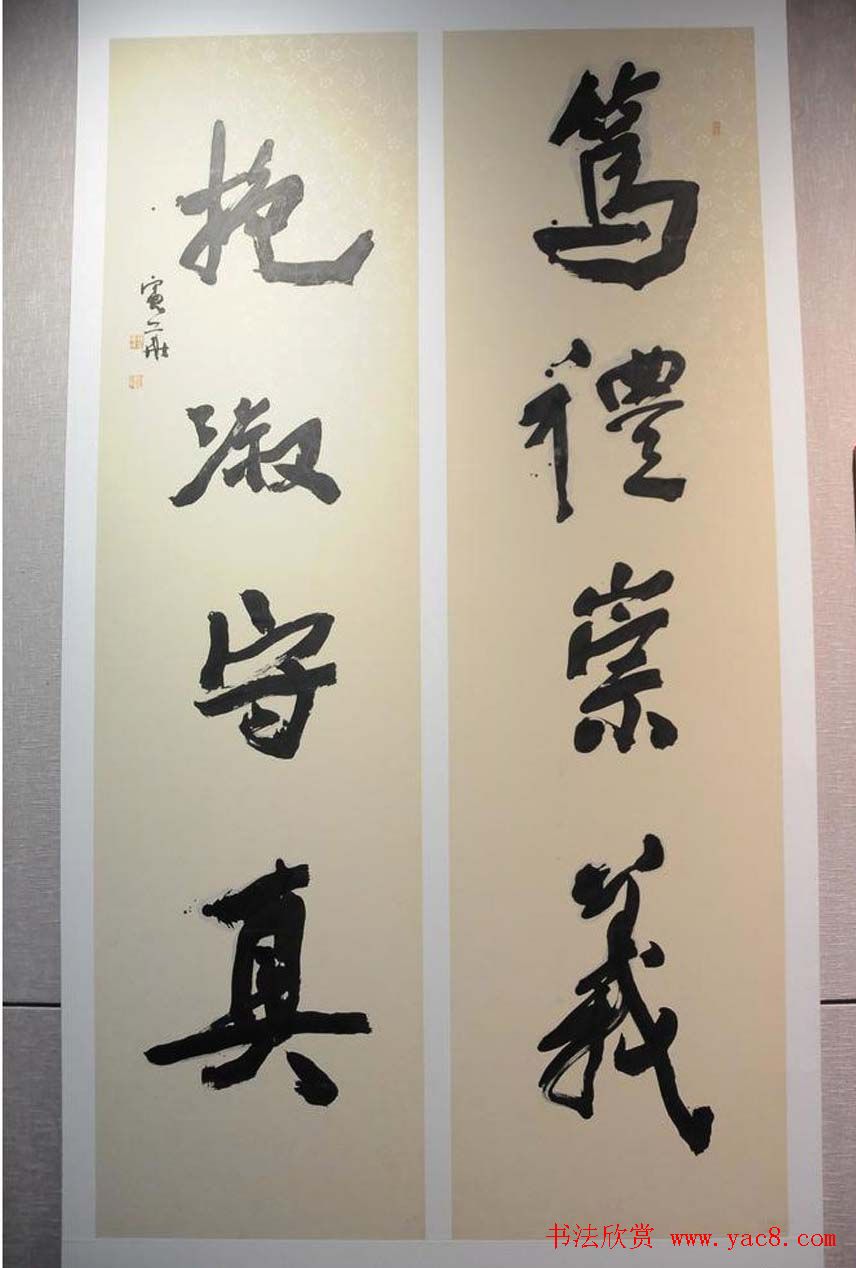 篤禮崇義
抱淑守真
书法欣赏 www.yac8.com